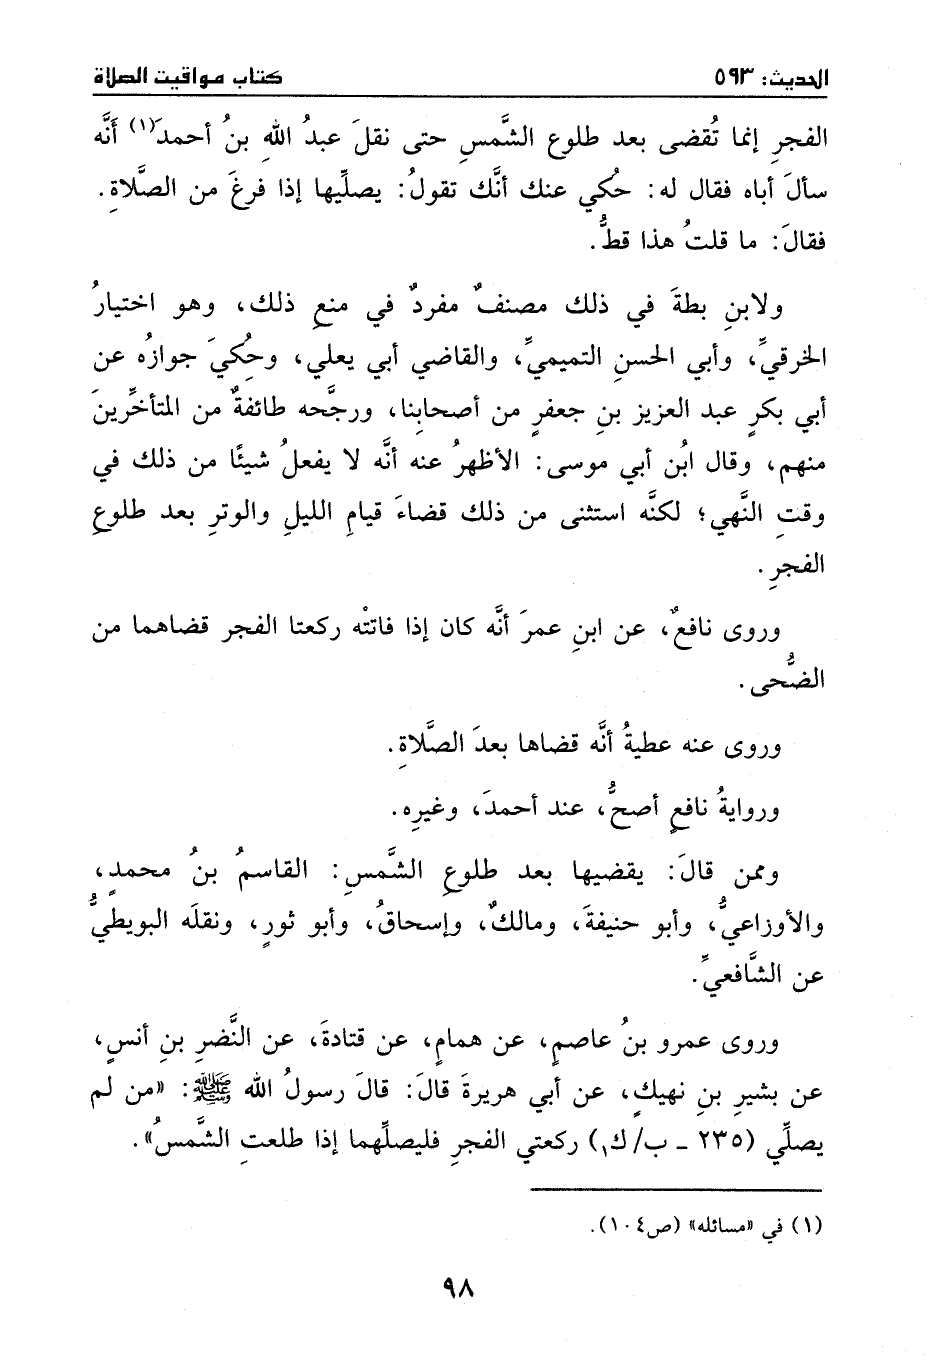 الحديث: ٥٩٣ كتاب مواقيت الصلاة
الفجرِ إنما تُقضى بعد طلوع الشَّمسِ حتى نقلَ عبدُ اللهِ بنُ أحمدَ(١) أنَّه
سألَ أباه فقال له: حُكي عنك أنَّك تقولُ: يصلِّيها إذا فرغَ من الصَّلاةِ.
فقالَ: ما قلتُ هذا قطُّ.
ولابنِ بطةَ في ذلك مصنفٌ مفردٌ في منعِ ذلك، وهو اختيارُ
الخرقيِّ، وأبي الحسنِ التميميِّ، والقاضي أبي يعلي، وحُكيَ جوازُه عن
أبي بكرٍ عبد العزيز بنِ جعفرٍ من أصحابِنا، ورجَّحه طائفةٌ من المتأخِّرينَ
منهم، وقال ابنُ أبي موسى: الأظهرُ عنه أنَّه لا يفعلُ شيئًا من ذلك في
وقتِ النَّهي؛ لكنَّه استثنى من ذلك قضاءَ قيامِ الليلِ والوترِ بعد طلوعِ
الفجرِ.
وروى نافعٌ، عن ابنِ عمرَ أنَّه كان إذا فاتتْه ركعتا الفجر قضاهما من
الضُّحى.
وروى عنه عطيةُ أنَّه قضاها بعدَ الصَّلاةِ.
وروايةُ نافعٍ أصحُّ، عند أحمدَ، وغيرِه.
وممن قالَ: يقضيها بعد طلوعِ الشَّمسِ: القاسمُ بنُ محمدٍ،
والأوزاعيُّ، وأبو حنيفةَ، ومالكٌ، وإسحاقُ، وأبو ثورٍ، ونقلَه البويطيُّ
عن الشَّافعيِّ.
وروى عمرو بنُ عاصمٍ، عن همامٍ، عن قتادةَ، عن النَّضرِ بنِ أنسٍ،
عن بشيرِ بنِ نهيكٍ، عن أبي هريرةَ قالَ: قالَ رسولُ الله ﷺ: «من لم
يصلِّي (٢٣٥ - ب/ ك١) ركعتي الفجرِ فليصلِّهما إذا طلعتِ الشَّمسُ».
(١) في «مسائله» (ص١٠٤).
٩٨